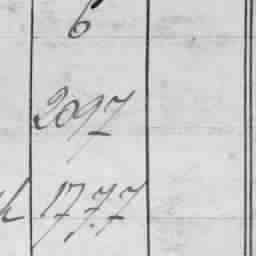 6
2097
1777